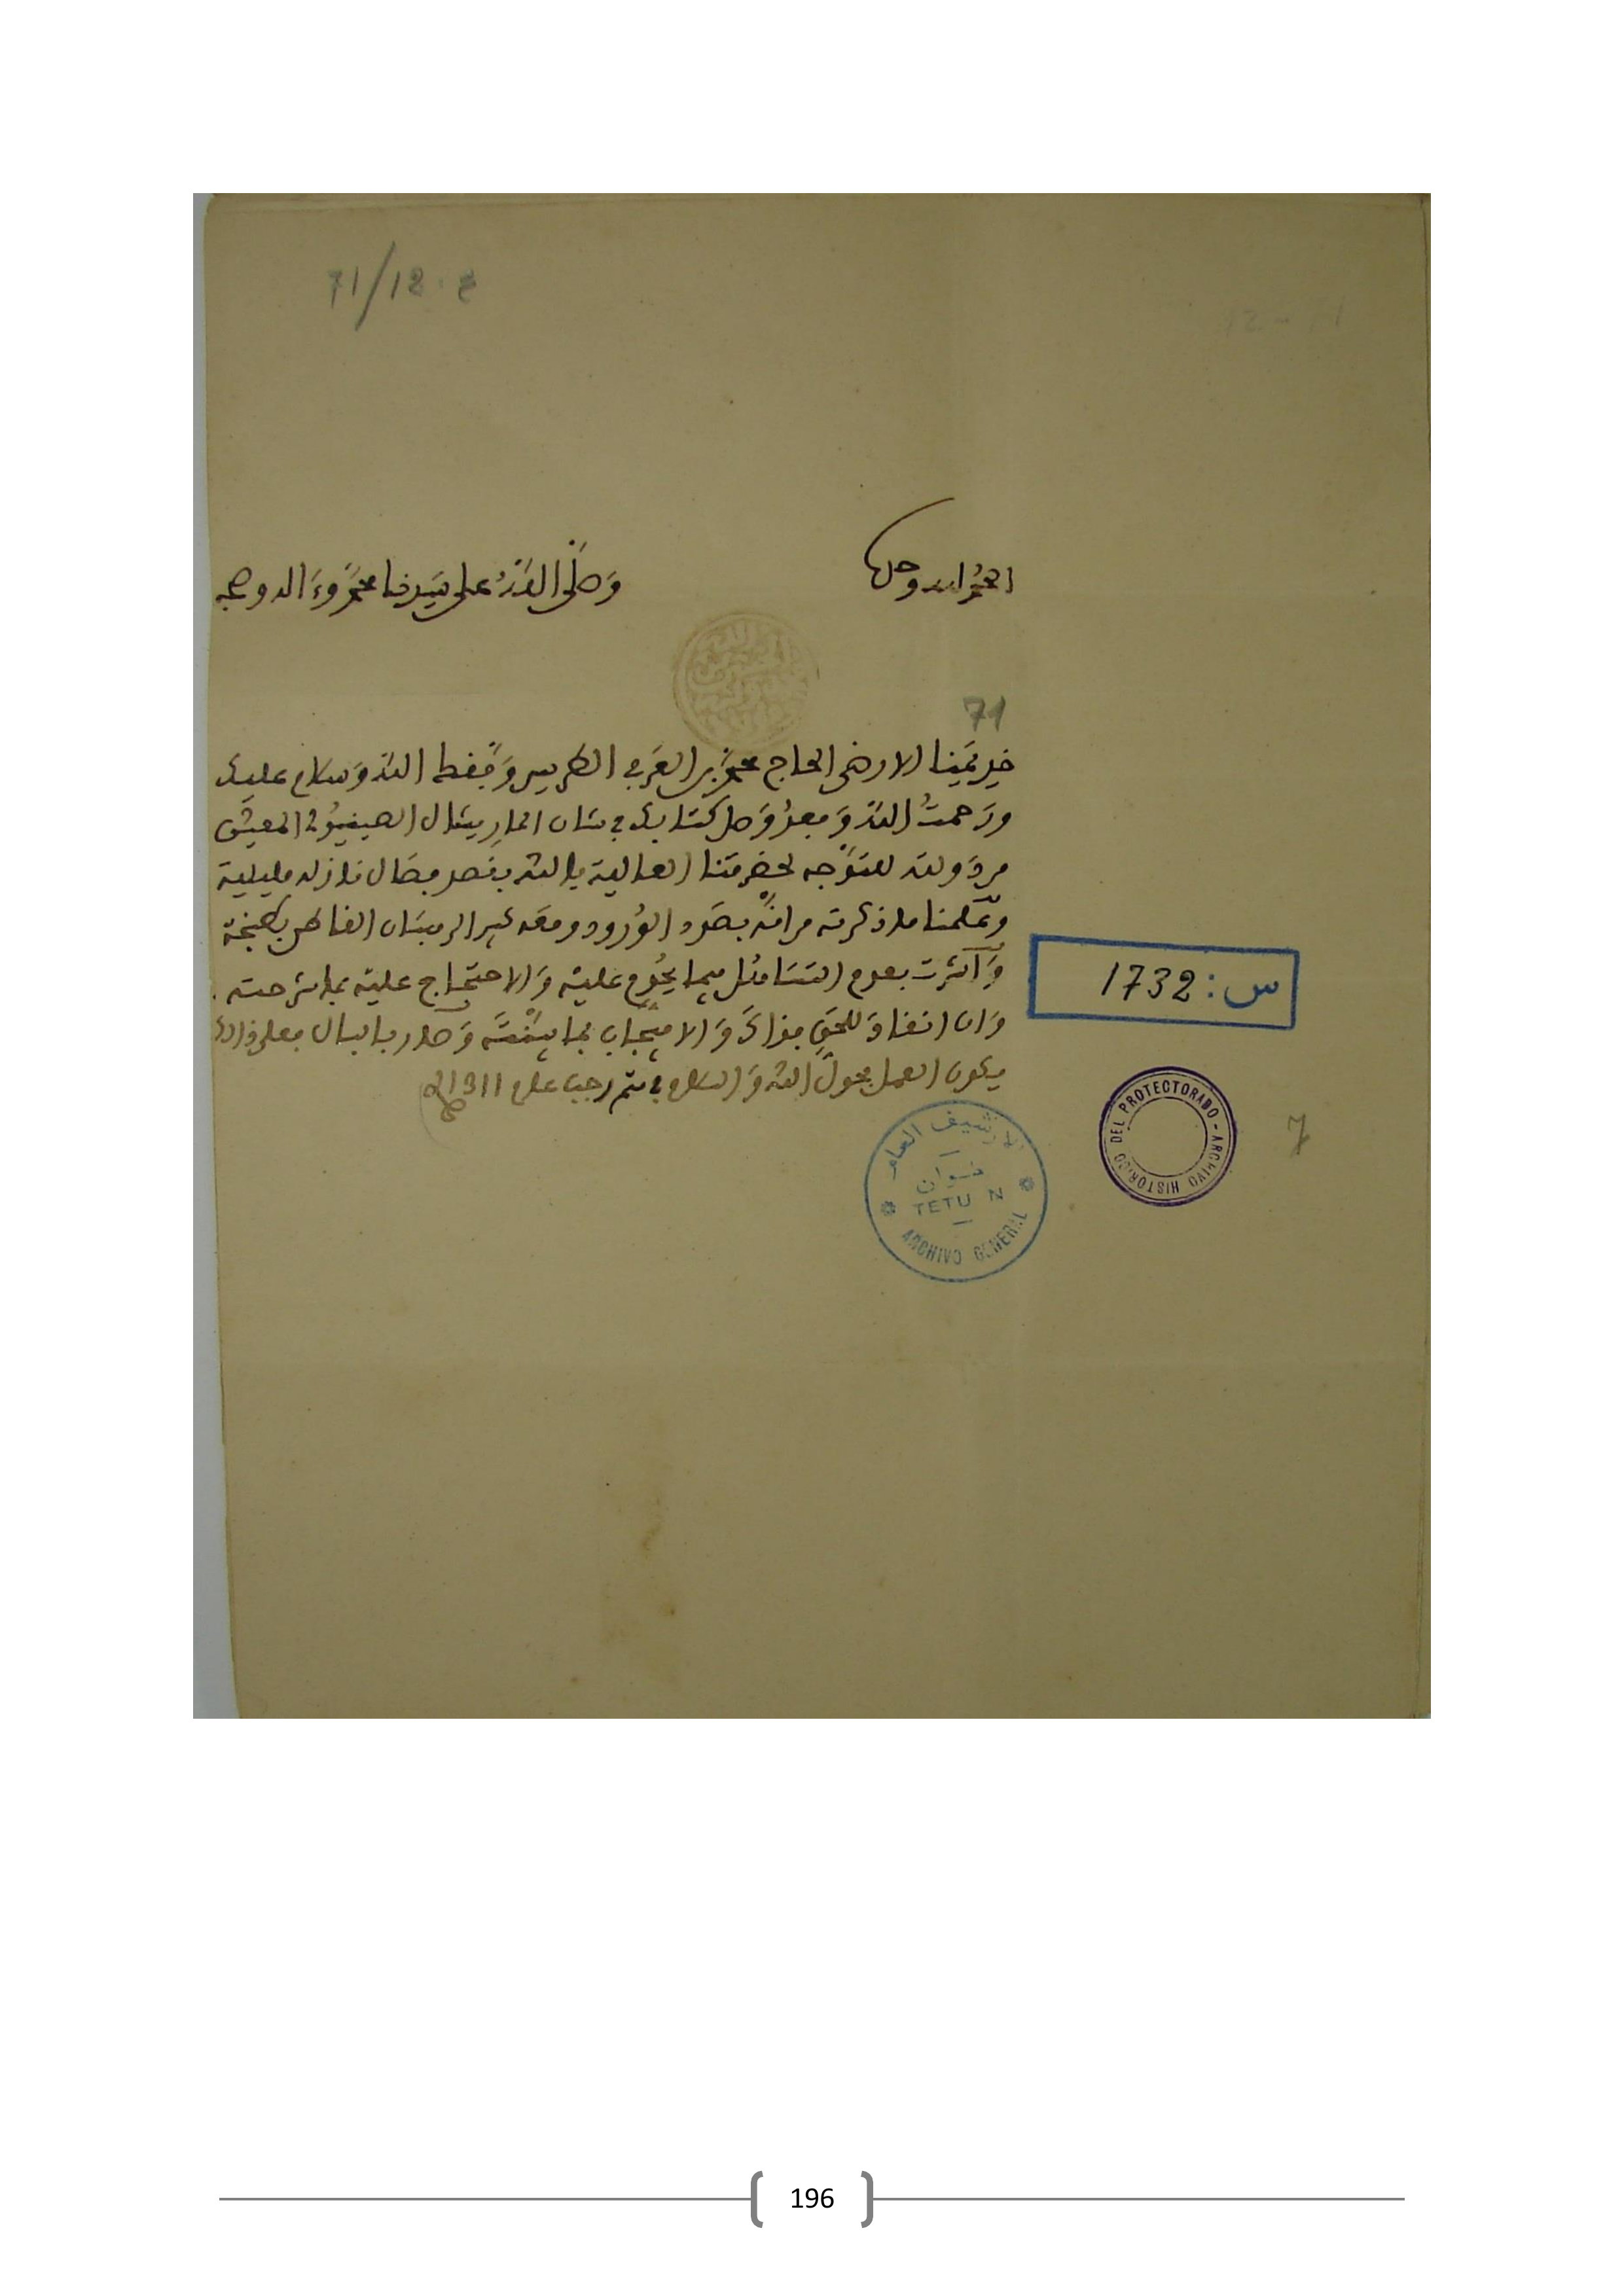 71/12.ع
12-71
الحمد لله وحده
وَصَلَّى اللهُ على سَيدنا محمَّد وءَاله وصحبه
71
خديمَنا الارضى الحاج محمد بن العربي الطريس وَفقك الله وَسلام عليك
ورَحمتُ الله وَبعدُ وَصل كتابك في شان الماريشال المعيَّن
من دَولته للتوَجه لحضرتنا العالية بالله بقصد فصَال نازلة مليلية
وَعلمنا ما ذكرته من انَّه بصَدد الوُرود ومعَه كبير الرهبَان القاطن بطنجة
وَأشرت بعدم التسَاهُل فيما عليه وَالاحتجاج عليه بما شرحته
وَان انقادَ للحق فذاكَ وَالا فيُجاب بما بيَّنْتَه وَصار بالبال فعلى ذلك
يكون العمل بحول الله وَالسلام في رجب عام 1311
س: 1732
الارشيف العام
تطوان
TETU N
ARCHIVO GENERAL
DEL PROTECTORADO - ARCHIVO HISTORICO
7
196